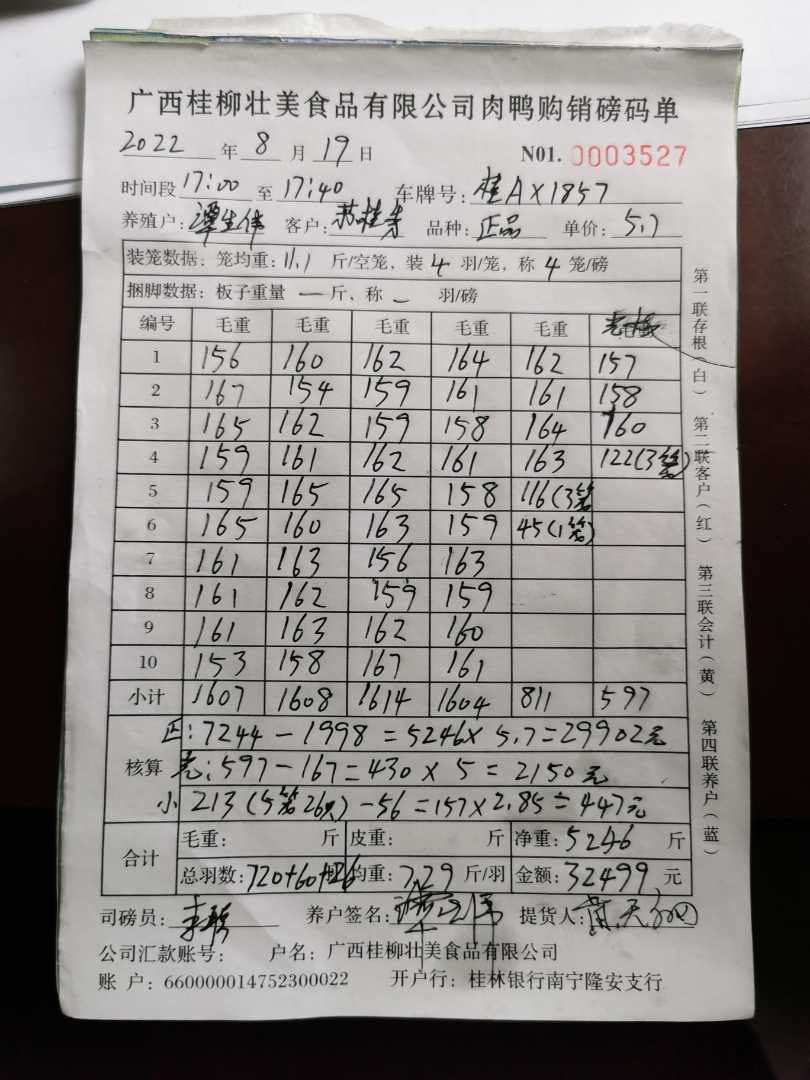 广西桂柳壮美食品有限公司肉鸭购销磅码单
2022 年 8 月 19 日 N01. 0003527
时间段 17:00 至 17:40 车牌号: 桂AX1857
养殖户: 客户: 苏桂 品种: 正品 单价: 5.7
装笼数据: 笼均重: 11.1 斤/空笼, 装 4 羽/笼, 称 4 笼/磅
捆脚数据: 板子重量 一 斤, 称 一 羽/磅
编号 毛重 毛重 毛重 毛重 毛重
1 156 160 162 164 162 157
2 167 154 159 161 161 158
3 165 162 159 158 164 160
4 159 161 162 161 163 122(3笼)
5 159 165 165 158 116(3笼
6 165 160 163 159 45(1笼)
7 161 163 156 163
8 161 162 159 159
9 161 163 162 160
10 153 158 167 161
小计 1607 1608 1614 1604 811 597
正: 7244 - 1998 = 5246 × 5.7 = 29902元
核算 : 597 - 167 = 430 × 5 = 2150元
小 213 (5笼26只) - 56 = 157 × 2.85 = 447元
合计 毛重: 斤 皮重: 斤 净重: 5246 斤
总羽数: 720+60+26 均重: 7.29 斤/羽 金额: 32499 元
司磅员: 养户签名: 提货人:
公司汇款账号: 户名: 广西桂柳壮美食品有限公司
账 户: 660000014752300022 开户行: 桂林银行南宁隆安支行
第一联存根(白) 第二联客户(红) 第三联会计(黄) 第四联养户(蓝)